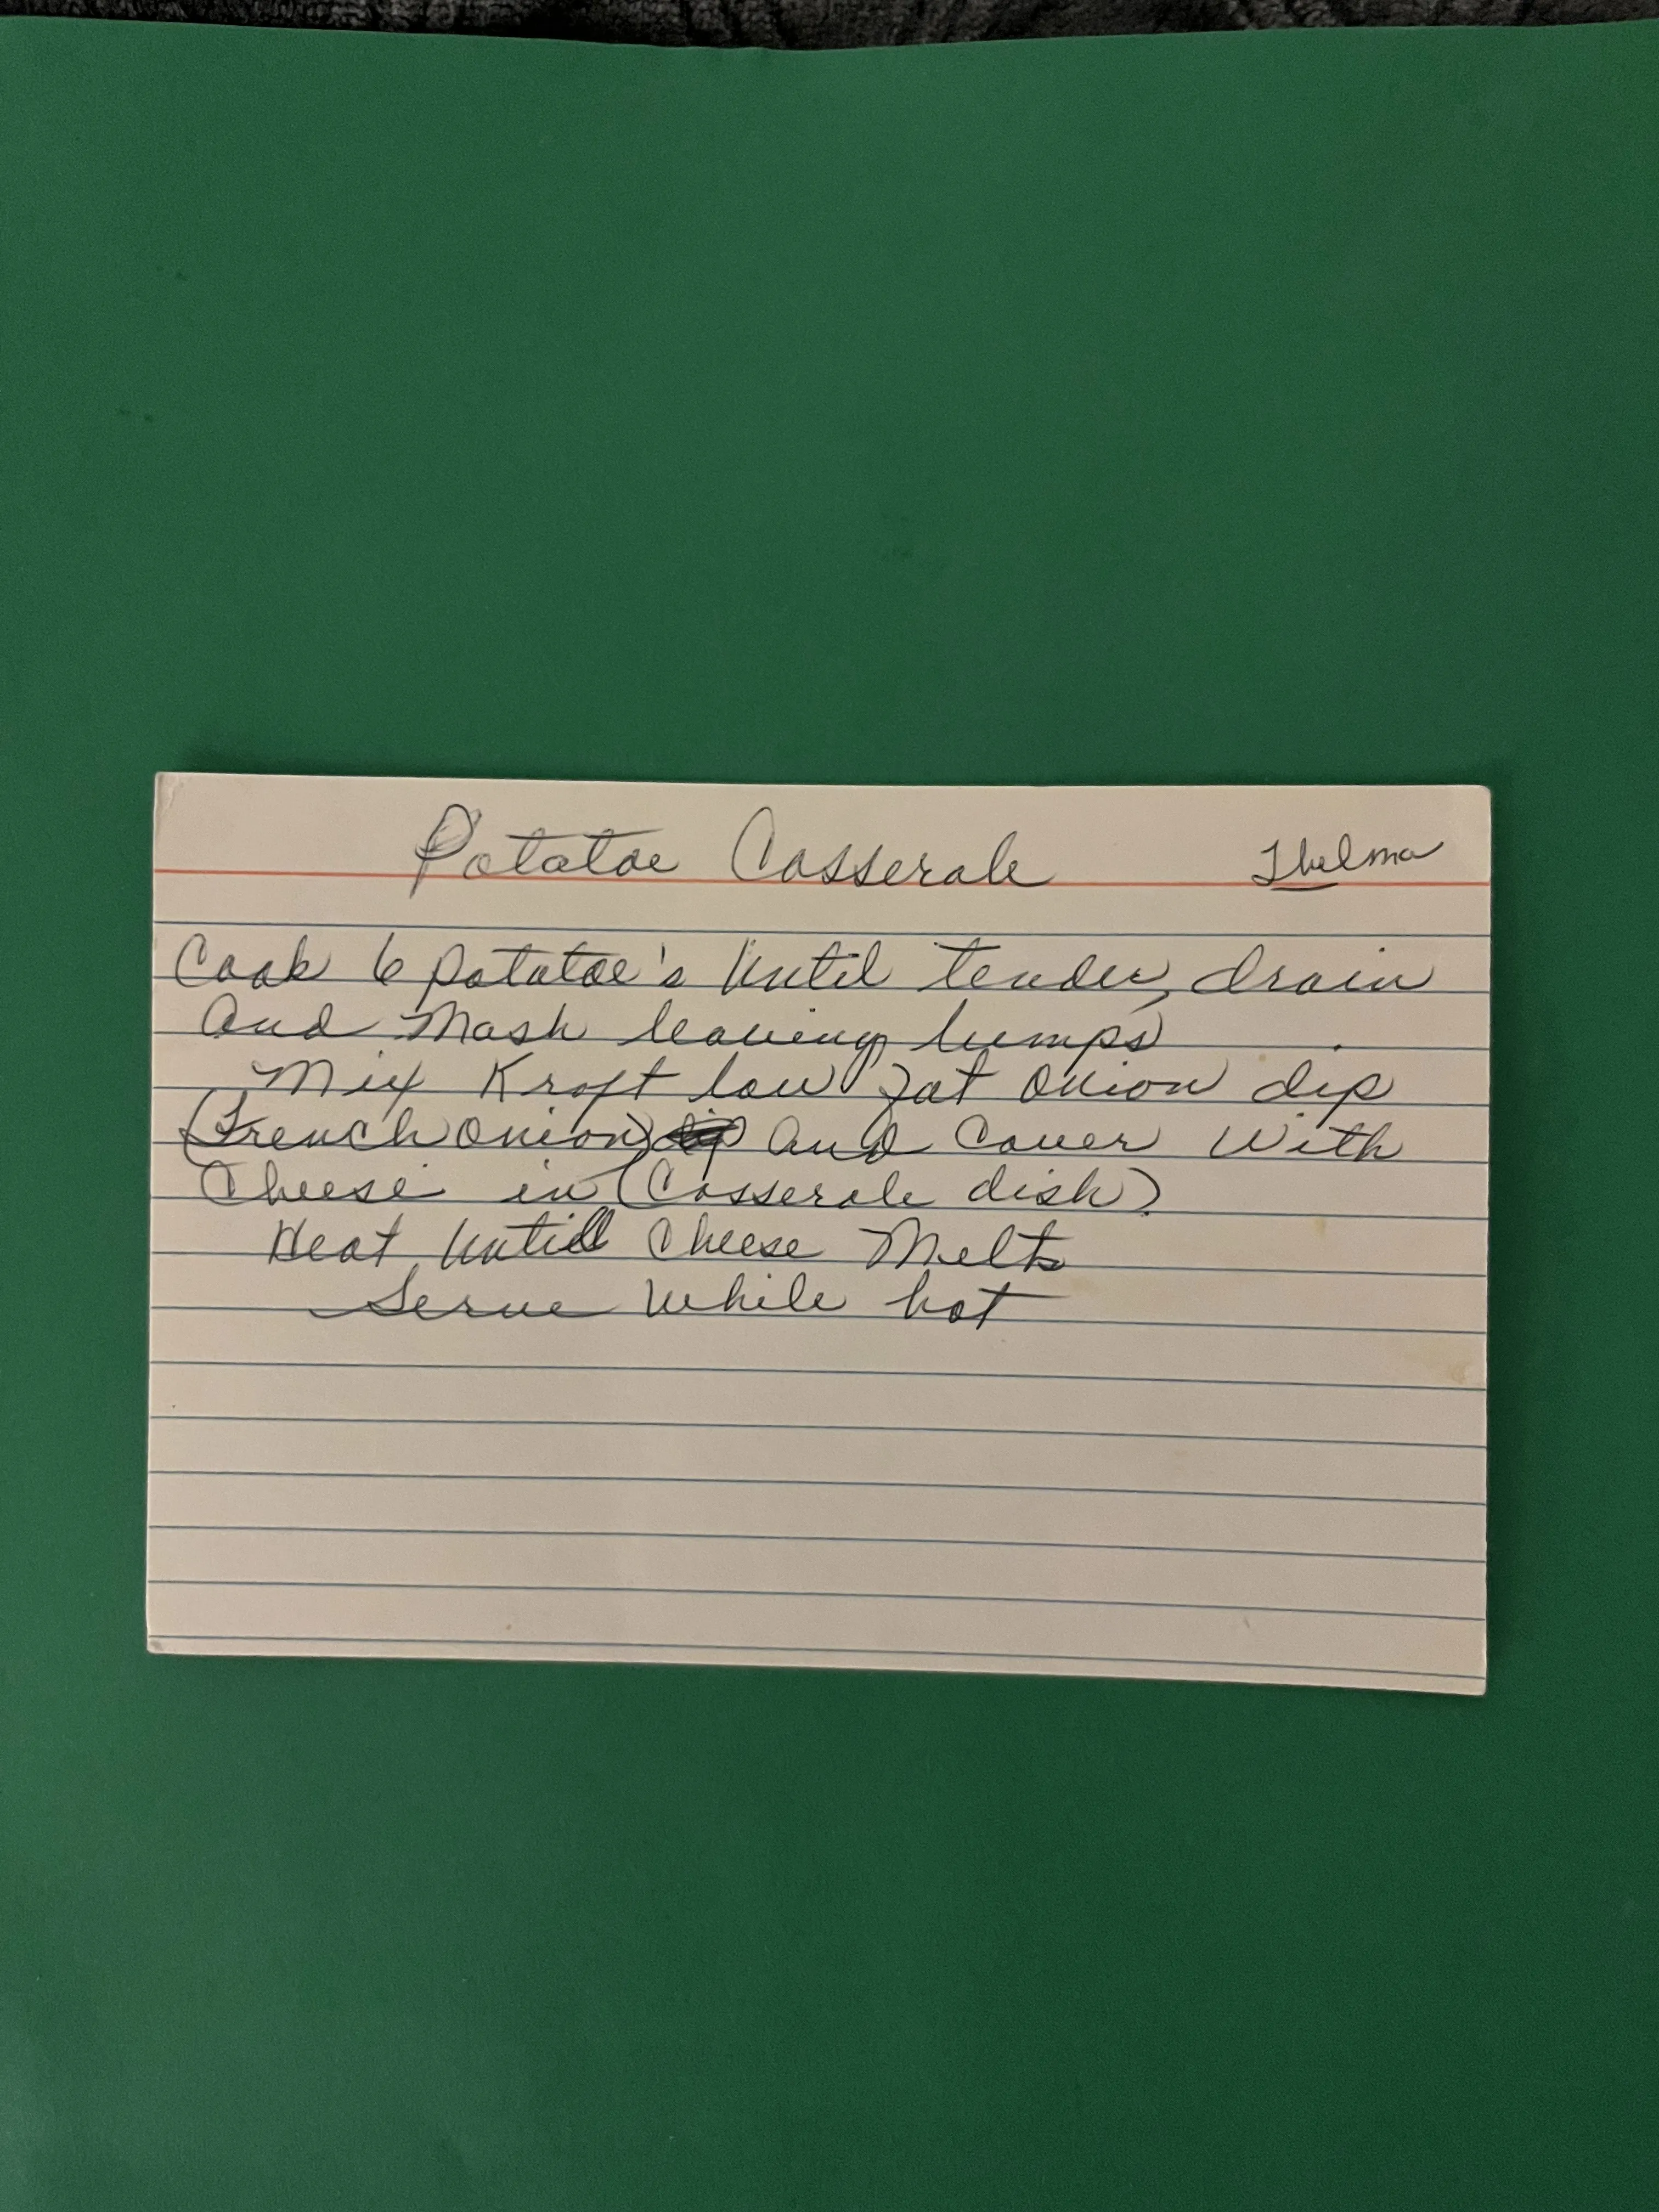 Potatoe Casserole Thelma
Cook 6 potatoe's until tender, drain
and Mash leaving lumps
Mix Kraft low fat onion dip
(French onion) and cover with
Cheese in (Casserole dish)
Heat untill cheese Melts
Serve while hot